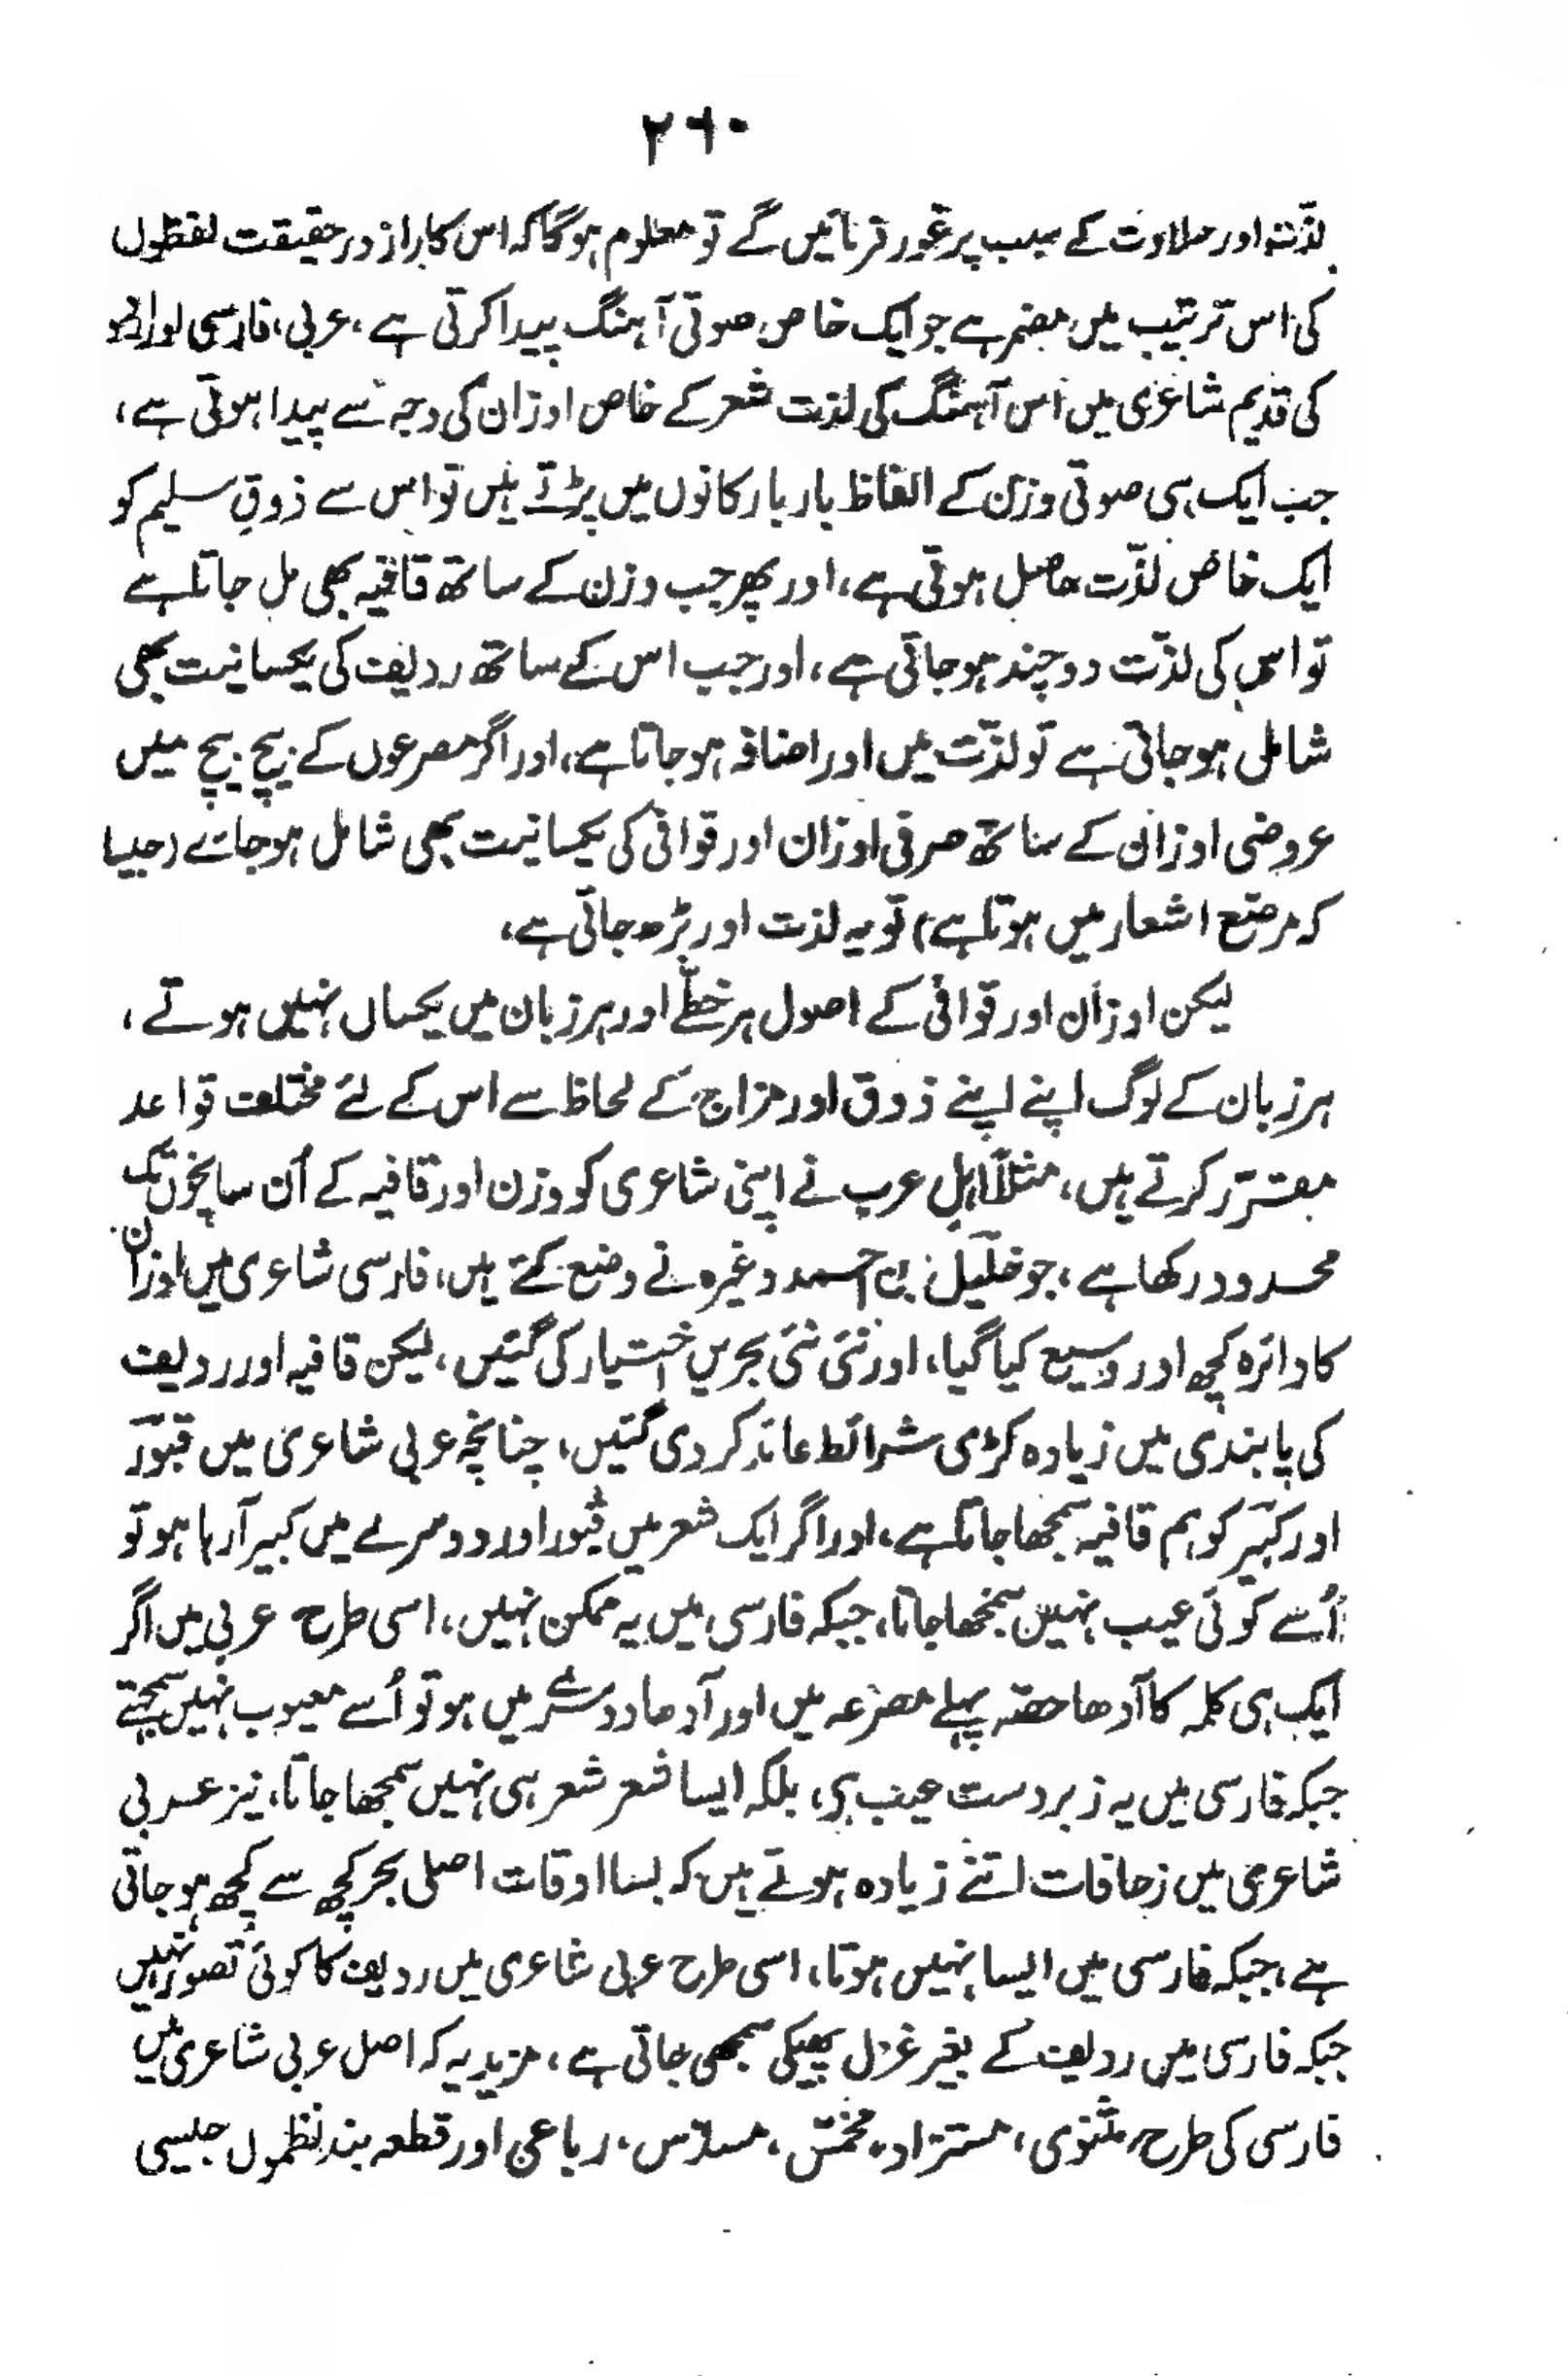 ۲۶۰
لذّت اور حلاوت کے سبب پر غور فرمائیں گے تو معلوم ہوگا کہ اس کا راز درحقیقت لفظوں
کی اس ترتیب میں مضمر ہے جو ایک خاص صوتی آہنگ پیدا کرتی ہے، عربی، فارسی اور اردو
کی قدیم شاعری میں اس آہنگ کی لذت شعر کے خاص اوزان کی وجہ سے پیدا ہوتی ہے،
جب ایک ہی صوتی وزن کے الفاظ بار بار کانوں میں پڑتے ہیں تو اس سے ذوقِ سلیم کو
ایک خاص لذّت حاصل ہوتی ہے، اور پھر جب وزن کے ساتھ قافیہ بھی مل جاتا ہے
تو اس کی لذّت دوچند ہوجاتی ہے، اور جب اس کے ساتھ ردیف کی یکسانیت بھی
شامل ہوجاتی ہے تو لذّت میں اور اضافہ ہوجاتا ہے، اور اگر مصرعوں کے بیچ بیچ میں
عروضی اوزان کے ساتھ صرفی اوزان اور قوافی کی یکسانیت بھی شامل ہوجائے (جیسا
کہ مرصّع اشعار میں ہوتا ہے) تو یہ لذت اور بڑھ جاتی ہے،
لیکن اوزان اور قوافی کے اصول ہر خطّے اور ہر زبان میں یکساں نہیں ہوتے،
ہر زبان کے لوگ اپنے اپنے ذوق اور مزاج کے لحاظ سے اس کے لئے مختلف قواعد
مقرّر کرتے ہیں، مثلاً اہلِ عرب نے اپنی شاعری کو وزن اور قافیہ کے اُن سانچوں تک
محدود رکھا ہے، جو خلیل بن احمد وغیرہ نے وضع کئے ہیں، فارسی شاعری میں اوزان
کا دائرہ کچھ اور وسیع کیا گیا، اور نئی نئی بحریں اختیار کی گئیں، لیکن قافیہ اور ردیف
کی پابندی میں زیادہ کڑی شرائط عائد کردی گئیں، چنانچہ عربی شاعری میں قبور
اور کبیر کو ہم قافیہ سمجھا جاتا ہے، اور اگر ایک شعر میں قبور اور دوسرے میں کبیر آرہا ہو تو
اُسے کوئی عیب نہیں سمجھا جاتا، جبکہ فارسی میں یہ ممکن نہیں، اسی طرح عربی میں اگر
ایک ہی کلمہ کا آدھا حصّہ پہلے مصرعہ میں اور آدھا دوسرے میں ہو تو اُسے معیوب نہیں سمجھتے
جبکہ فارسی میں یہ زبردست عیب ہے، بلکہ ایسا شعر شعر ہی نہیں سمجھا جاتا، نیز عربی
شاعری میں زحافات اتنے زیادہ ہوتے ہیں کہ بسا اوقات اصلی بحر کچھ سے کچھ ہوجاتی
ہے، جبکہ فارسی میں ایسا نہیں ہوتا، اسی طرح عربی شاعری میں ردیف کا کوئی تصور نہیں
جبکہ فارسی میں ردیف کے بغیر غزل پھیکی سمجھی جاتی ہے، مزید یہ کہ اصل عربی شاعری میں
فارسی کی طرح مثنوی، مستزاد، مخمّس، مسدّس، رباعی اور قطعہ بند نظموں جیسی